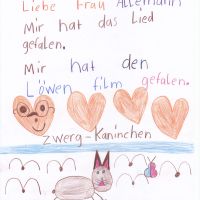 Liebe Frau Allemann
Mir hat das Lied
gefalen.
Mir hat den
Löwen film gefalen.
zwerg-Kaninchen